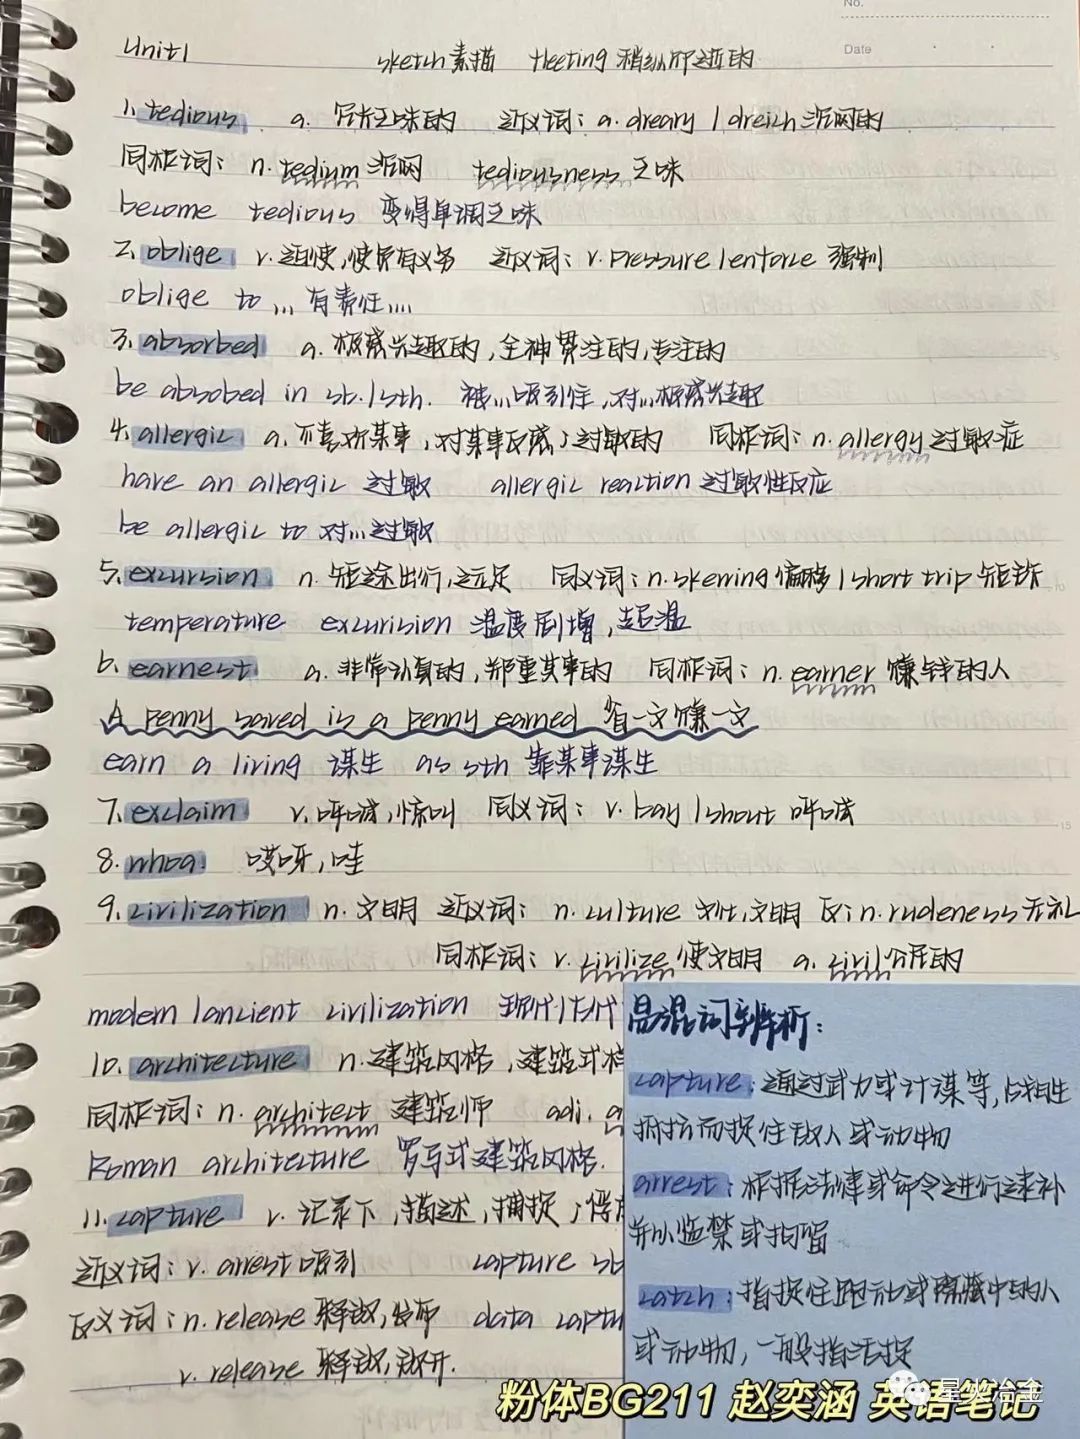 No.
Date
Unit1 sketch 素描 fleeting 稍纵即逝的
1. tedious a. 冗长乏味的 近义词: a. dreary / dreich 沉闷的
同根词: n. tedium 沉闷 tediousness 乏味
become tedious 变得单调乏味
2. oblige v. 迫使,使负有义务 近义词: v. pressure / enforce 强制
oblige to ... 有责任....
3. absorbed a. 极感兴趣的,全神贯注的,专注的
be absobed in sb./sth. 被...吸引住,对...极感兴趣
4. allergic a. 不喜欢某事,对某事反感;过敏的 同根词: n. allergy 过敏症
have an allergic 过敏 allergic reaction 过敏性反应
be allergic to 对...过敏
5. excursion n. 短途出行,远足 同义词: n. skewing 偏移 / short trip 短途
temperature excurision 温度剧增,起温
6. earnest a. 非常认真的,郑重其事的 同根词: n. earner 赚钱的人
A penny saved is a penny earned 省一文赚一文
earn a living 谋生 as sth 靠某事谋生
7. exclaim v. 呼喊,惊叫 同义词: v. bay / shout 呼喊
8. whoa. 哎呀,哇
9. civilization n. 文明 近义词: n. culture 文化,文明 反: n. rudeness 无礼
同根词: v. civilize 使文明 a. civil 公民的
modern / ancient civilization 现代/古代
10. architecture n. 建筑风格,建筑式样
同根词: n. architect 建筑师 adj. a
Roman architecture 罗马式建筑风格.
11. capture v. 记录下,描述,捕捉;俘
近义词: v. arrest 吸引 capture sb
反义词: n. release 释放,发布 data captu
v. release 释放,放开.
易混词辨析:
capture: 通过武力或计谋等,战胜
抵抗而捉住敌人或动物
arrest: 根据法律或命令进行逮补
并以监禁或拘留
catch: 指捉住跑动或隐藏中的人
或动物,一般指活捉
星火冶金
粉体BG211 赵奕涵 英语笔记